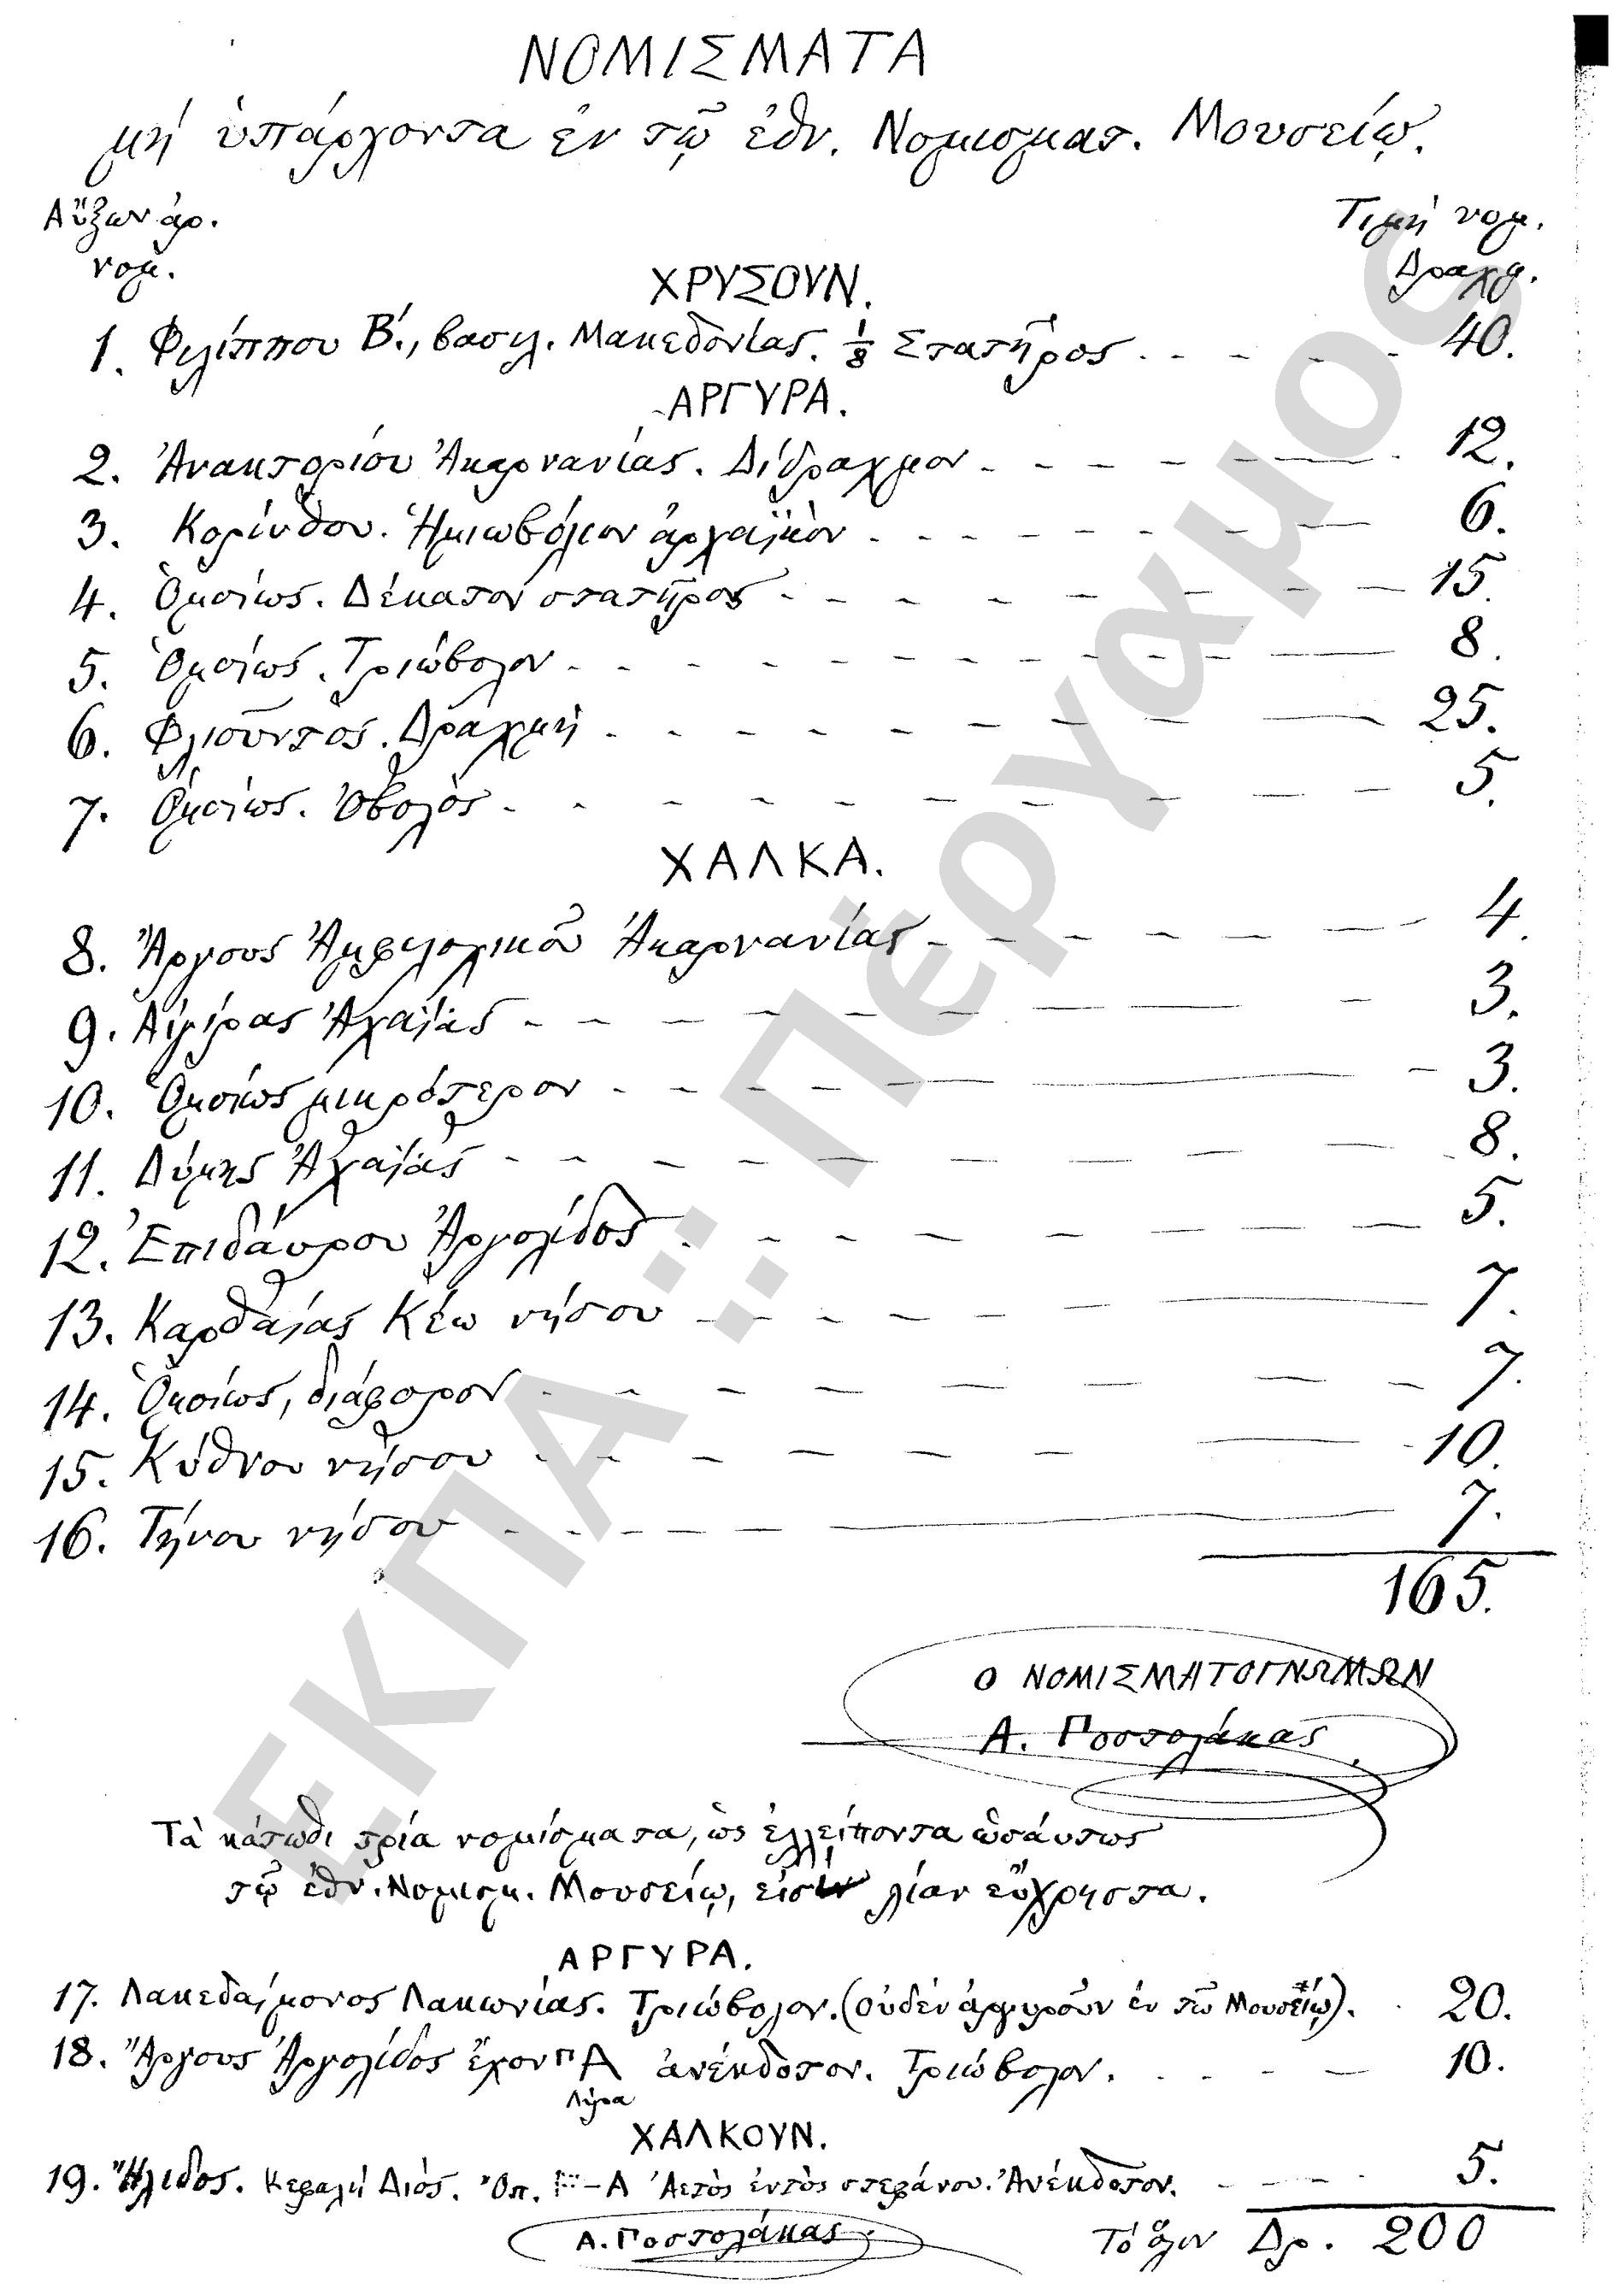 ΝΟΜΙΣΜΑΤΑ
μὴ ὑπάρχοντα ἐν τῷ ἐθν. Νομισματ. Μουσείῳ.
Αὔξων ἀρ. Τιμὴ νομ.
νομ. Δραχμ.
ΧΡΥΣΟΥΝ.
1. Φιλίππου Β΄., βασιλ. Μακεδονίας. 1/8 Στατῆρος 40.
ΑΡΓΥΡΑ.
2. Ἀνακτορίου Ἀκαρνανίας. Δίδραχμον 12.
3. Κορίνθου. Ἡμιωβόλιον ἀρχαϊκὸν 6.
4. Ὁμοίως. Δέκατον στατῆρος 15.
5. Ὁμοίως. Τριώβολον 8.
6. Φλιοῦντος. Δραχμὴ 25.
7. Ὁμοίως. Ὀβολὸς 5.
ΧΑΛΚΑ.
8. Ἄργους Ἀμφιλοχικοῦ Ἀκαρνανίας 4.
9. Αἰγίρας Ἀχαΐας 3.
10. Ὁμοίως μικρότερον 3.
11. Δύμης Ἀχαΐας 8.
12. Ἐπιδαύρου Ἀργολίδος 5.
13. Καρθαίας Κέω νήσου 7.
14. Ὁμοίως, διάφορον 7.
15. Κύθνου νήσου 10.
16. Τήνου νήσου 7.
165.
Ο ΝΟΜΙΣΜΑΤΟΓΝΩΜΩΝ
Α. Ποστολάκας
Τὰ κάτωθι τρία νομίσματα, ὡς ἐλλείποντα ὡσαύτως
τῷ ἐθν. Νομισμ. Μουσείῳ, εἰσὶ λίαν εὔχρηστα.
ΑΡΓΥΡΑ.
17. Λακεδαίμονος Λακωνίας. Τριώβολον. (οὐδὲν ἀργυροῦν ἐν τῷ Μουσείῳ). 20.
18. Ἄργους Ἀργολίδος ἔχον Π Α ἀνέκδοτον. Τριώβολον. 10.
Λύρα
ΧΑΛΚΟΥΝ.
19. Ἤλιδος. Κεφαλὴ Διός. Ὀπ. – Α Ἀετὸς ἐντὸς στεφάνου. Ἀνέκδοτον. 5.
Α. Ποστολάκας. Τὸ ὅλον Δρ. 200
ΕΚΠΑ :: Πέργαμος